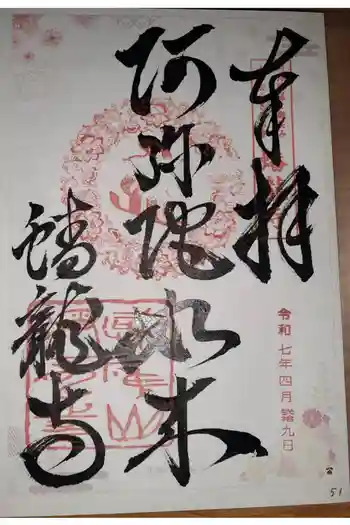 奉拝
阿弥陀如来
蟠龍寺
令和七年四月拾九日
51